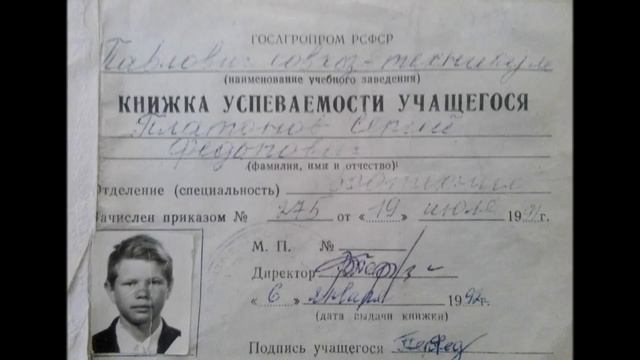 ГОСАГРОПРОМ РСФСР
Павлович совхоз-техникум
(наименование учебного заведения)
КНИЖКА УСПЕВАЕМОСТИ УЧАЩЕГОСЯ
Платонов Сергей
Федорович
(фамилия, имя и отчество)
Отделение (специальность)
Зачислен приказом № 275 от «19» июля 1991г.
М. П. №
Директор
«6» января 1992г.
(дата выдачи книжки)
Подпись учащегося